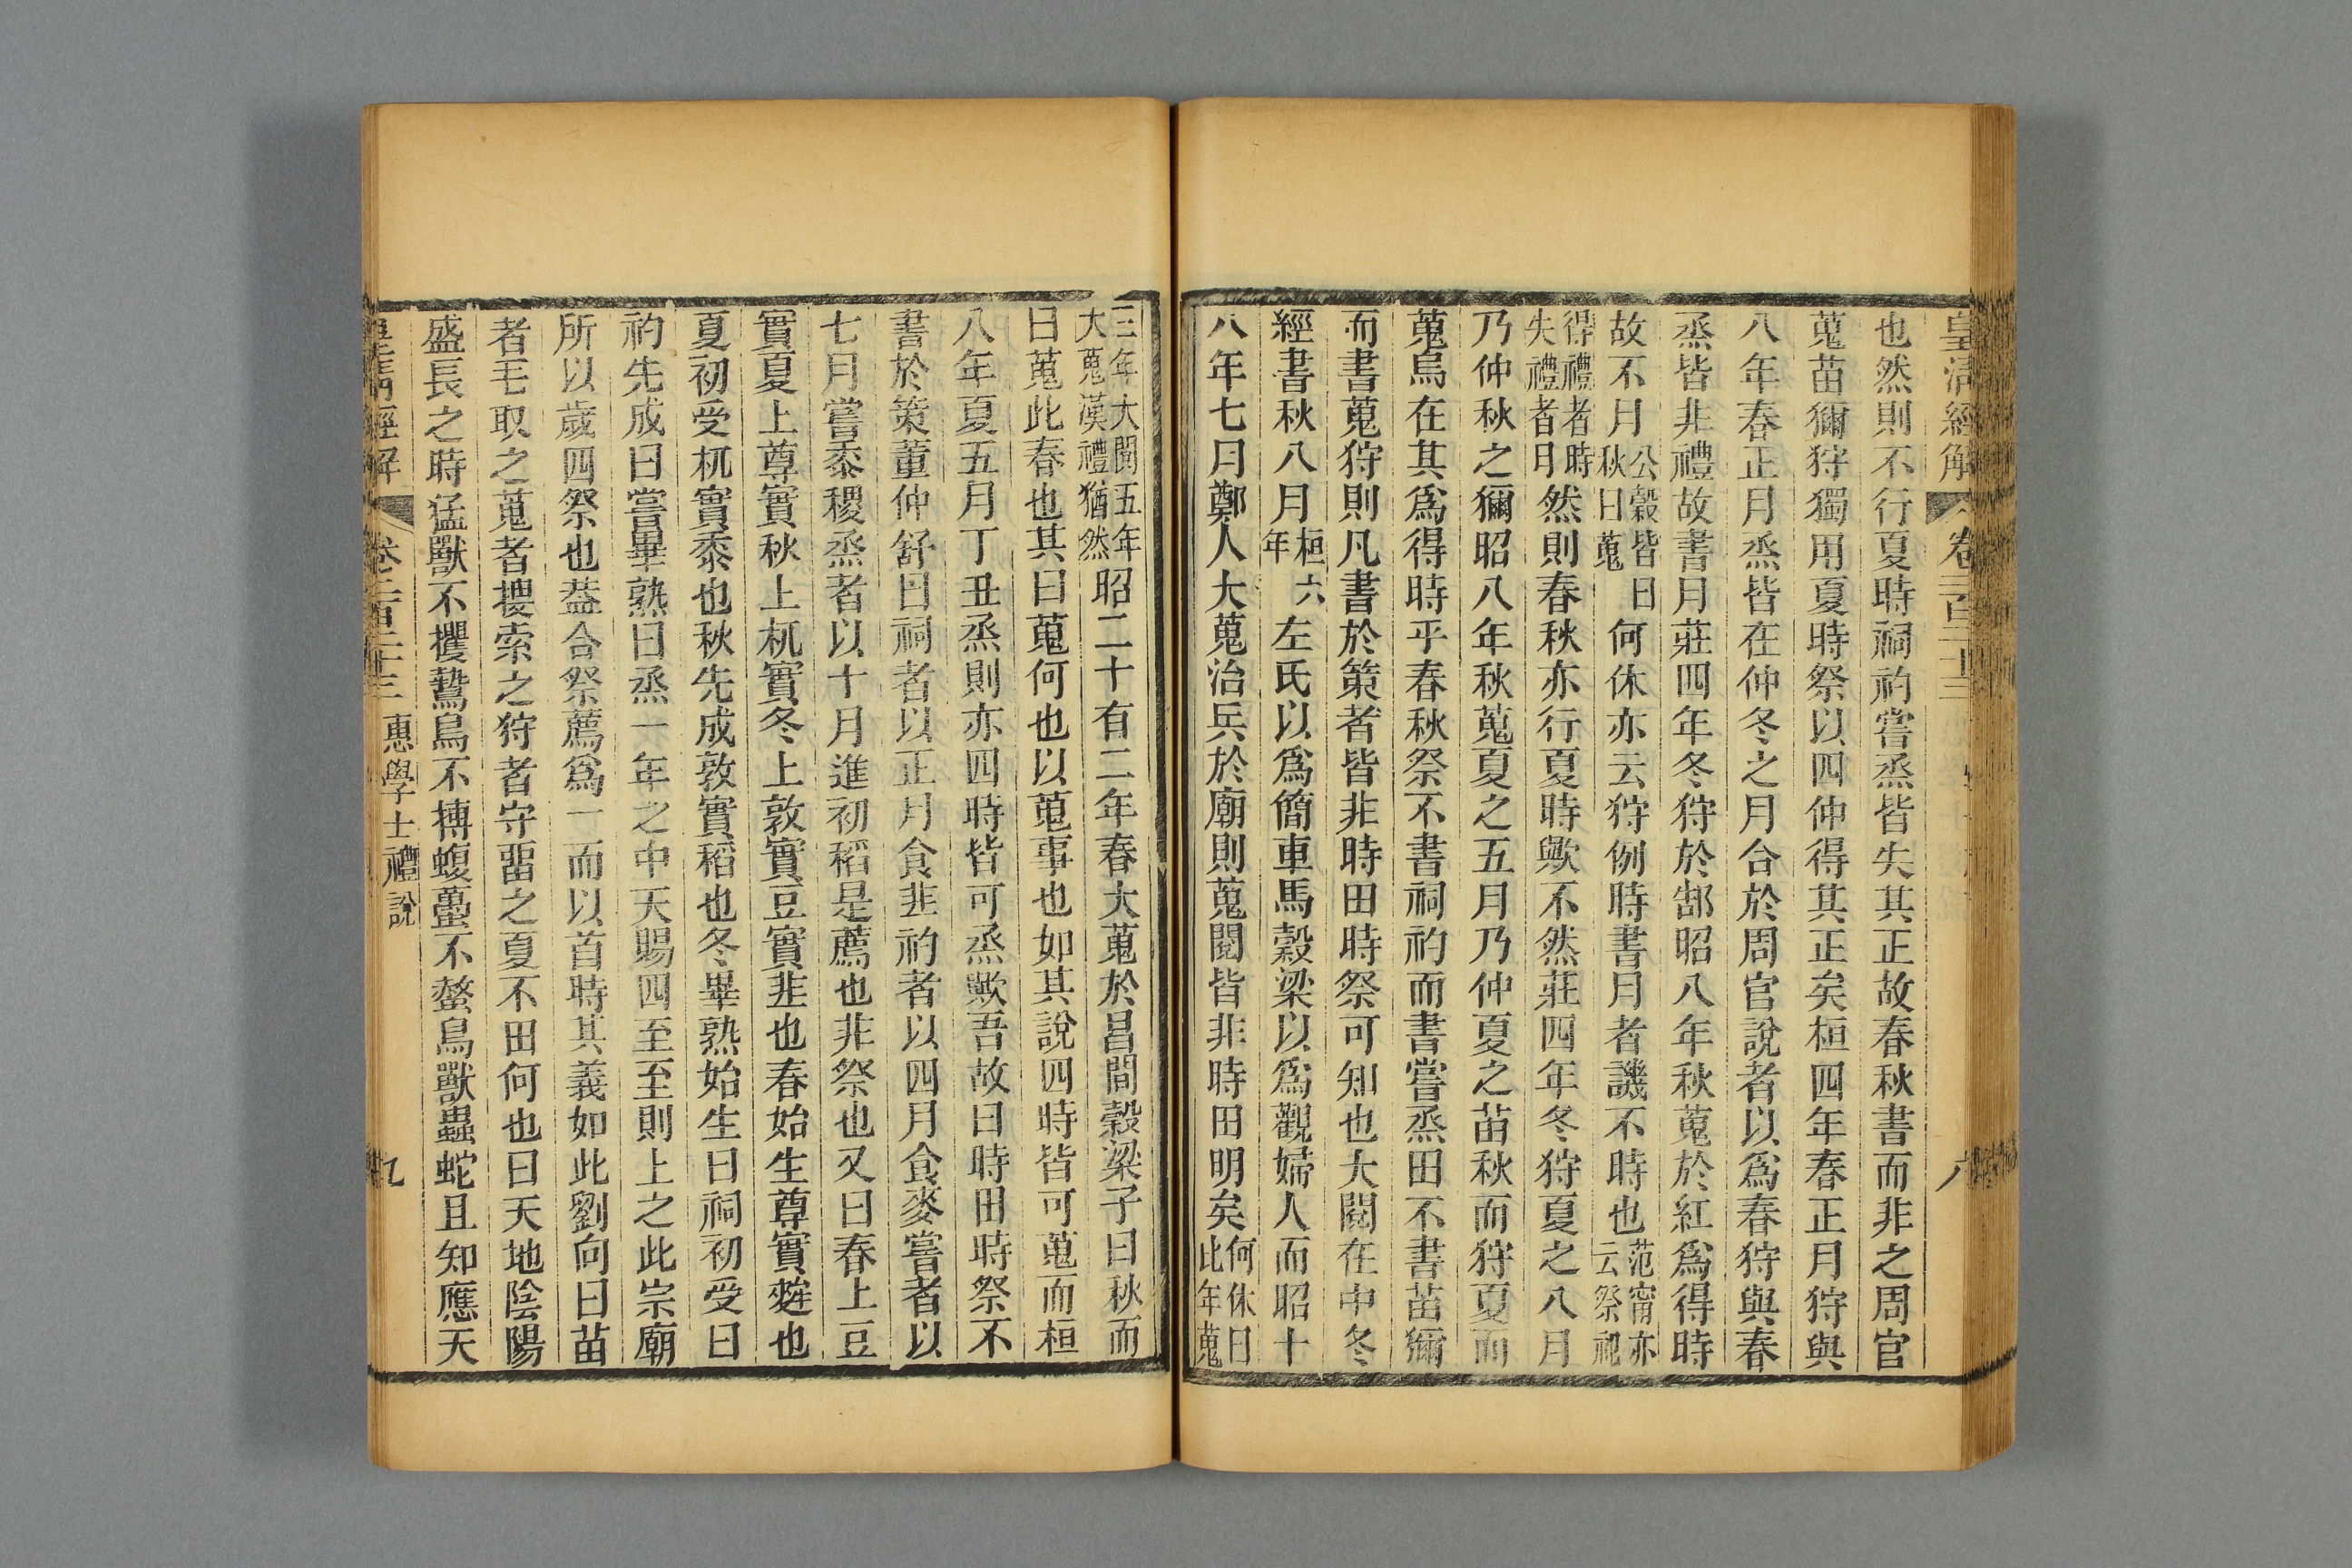 皇清經解 卷二百二十三 八
也然則不行夏時祠礿嘗烝皆失其正故春秋書而非之周官
蒐苗獮狩獨用夏時祭以四仲得其正矣桓四年春正月狩與
八年春正月烝皆在仲冬之月合於周官說者以為春狩與春
烝皆非禮故書月莊四年冬狩於郜昭八年秋蒐於紅為得時
故不月公穀皆曰秋曰蒐何休亦云狩例時書月者譏不時也范甯亦云祭祀
得禮者時失禮者月然則春秋亦行夏時歟不然莊四年冬狩夏之八月
乃仲秋之獮昭八年秋蒐夏之五月乃仲夏之苗秋而狩夏而
蒐烏在其為得時乎春秋祭不書祠礿而書嘗烝田不書苗獮
而書蒐狩則凡書於策者皆非時田時祭可知也大閱在中冬
經書秋八月桓六年左氏以為簡車馬穀梁以為觀婦人而昭十
八年七月鄭人大蒐治兵於廟則蒐閱皆非時田明矣何休曰此年蒐
三年大閱五年大蒐漢禮猶然昭二十有二年春大蒐於昌間穀梁子曰秋而
曰蒐此春也其曰蒐何也以蒐事也如其說四時皆可蒐而桓
八年夏五月丁丑烝則亦四時皆可烝歟吾故曰時田時祭不
書於策董仲舒曰祠者以正月食韭礿者以四月食麥嘗者以
七月嘗黍稷烝者以十月進初稻是薦也非祭也又曰春上豆
實夏上尊實秋上朹實冬上敦實豆實韭也春始生尊實麰也
夏初受朹實黍也秋先成敦實稻也冬畢熟始生曰祠初受曰
礿先成曰嘗畢熟曰烝一年之中天賜四至至則上之此宗廟
所以歲四祭也葢合祭薦為一而以首時其義如此劉向曰苗
者毛取之蒐者搜索之狩者守畱之夏不田何也曰天地陰陽
盛長之時猛獸不攫鷙鳥不搏蝮蠆不螫鳥獸蟲蛇且知應天
皇清經解 卷二百二十三 惠學士禮說 九